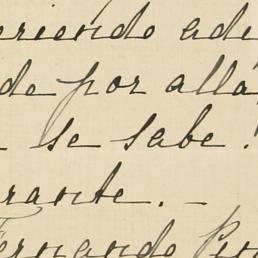 eriendo ade
de por allá,
se sabe!
rante. -
Fernando Pin